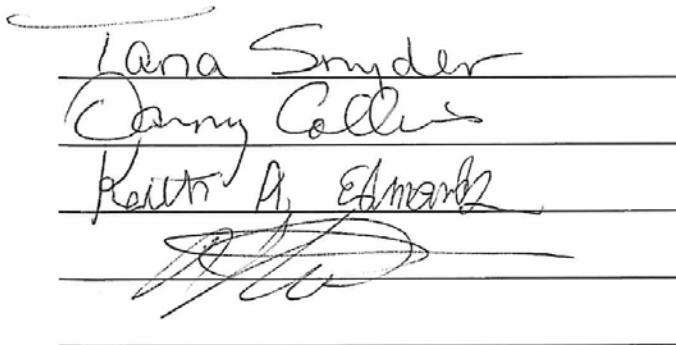 Tana Snyder
Danny Collins
Keith A. Edmonds